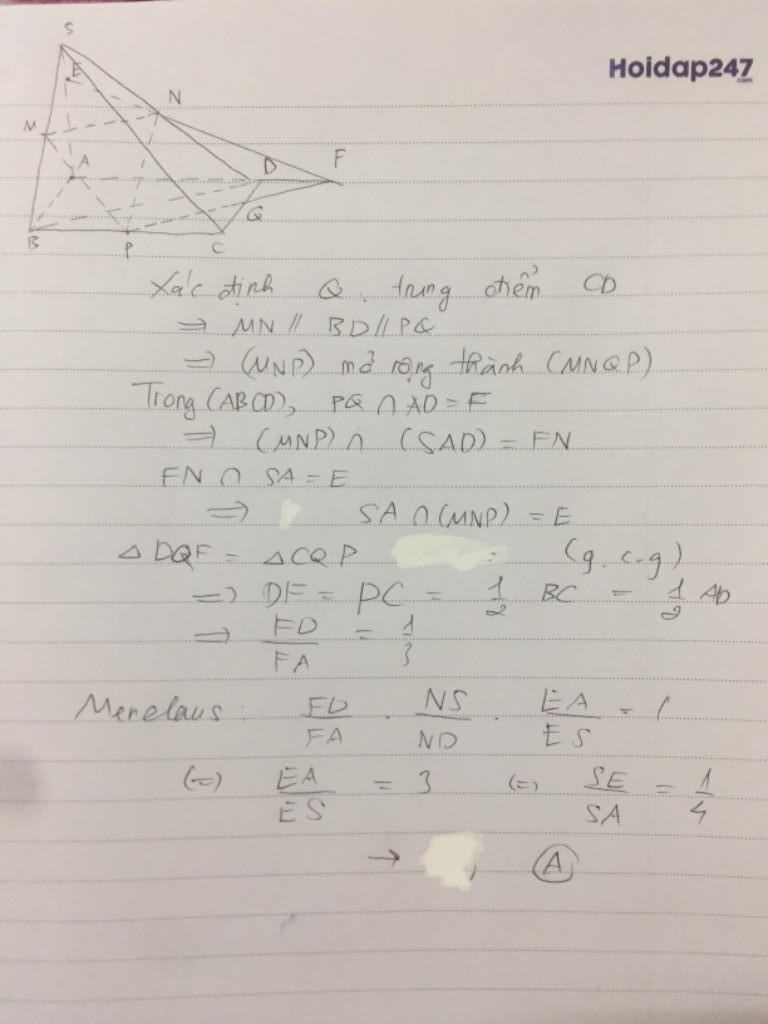 Hoidap247
.com
S
E
N
M
A
D
F
B
P
C
Q
Xác định Q: trung điểm CD
=> MN // BD // PQ
=> (MNP) mở rộng thành (MNQP)
Trong (ABCD), PQ ∩ AD = F
=> (MNP) ∩ (SAD) = FN
FN ∩ SA = E
=> SA ∩ (MNP) = E
△DQF = △CQP : (g.c.g)
=> DF = PC = 1/2 BC = 1/2 AD
=> FD/FA = 1/3
Menelaus: FD/FA . NS/ND . EA/ES = 1
(=) EA/ES = 3 (=) SE/SA = 1/4
→ , A